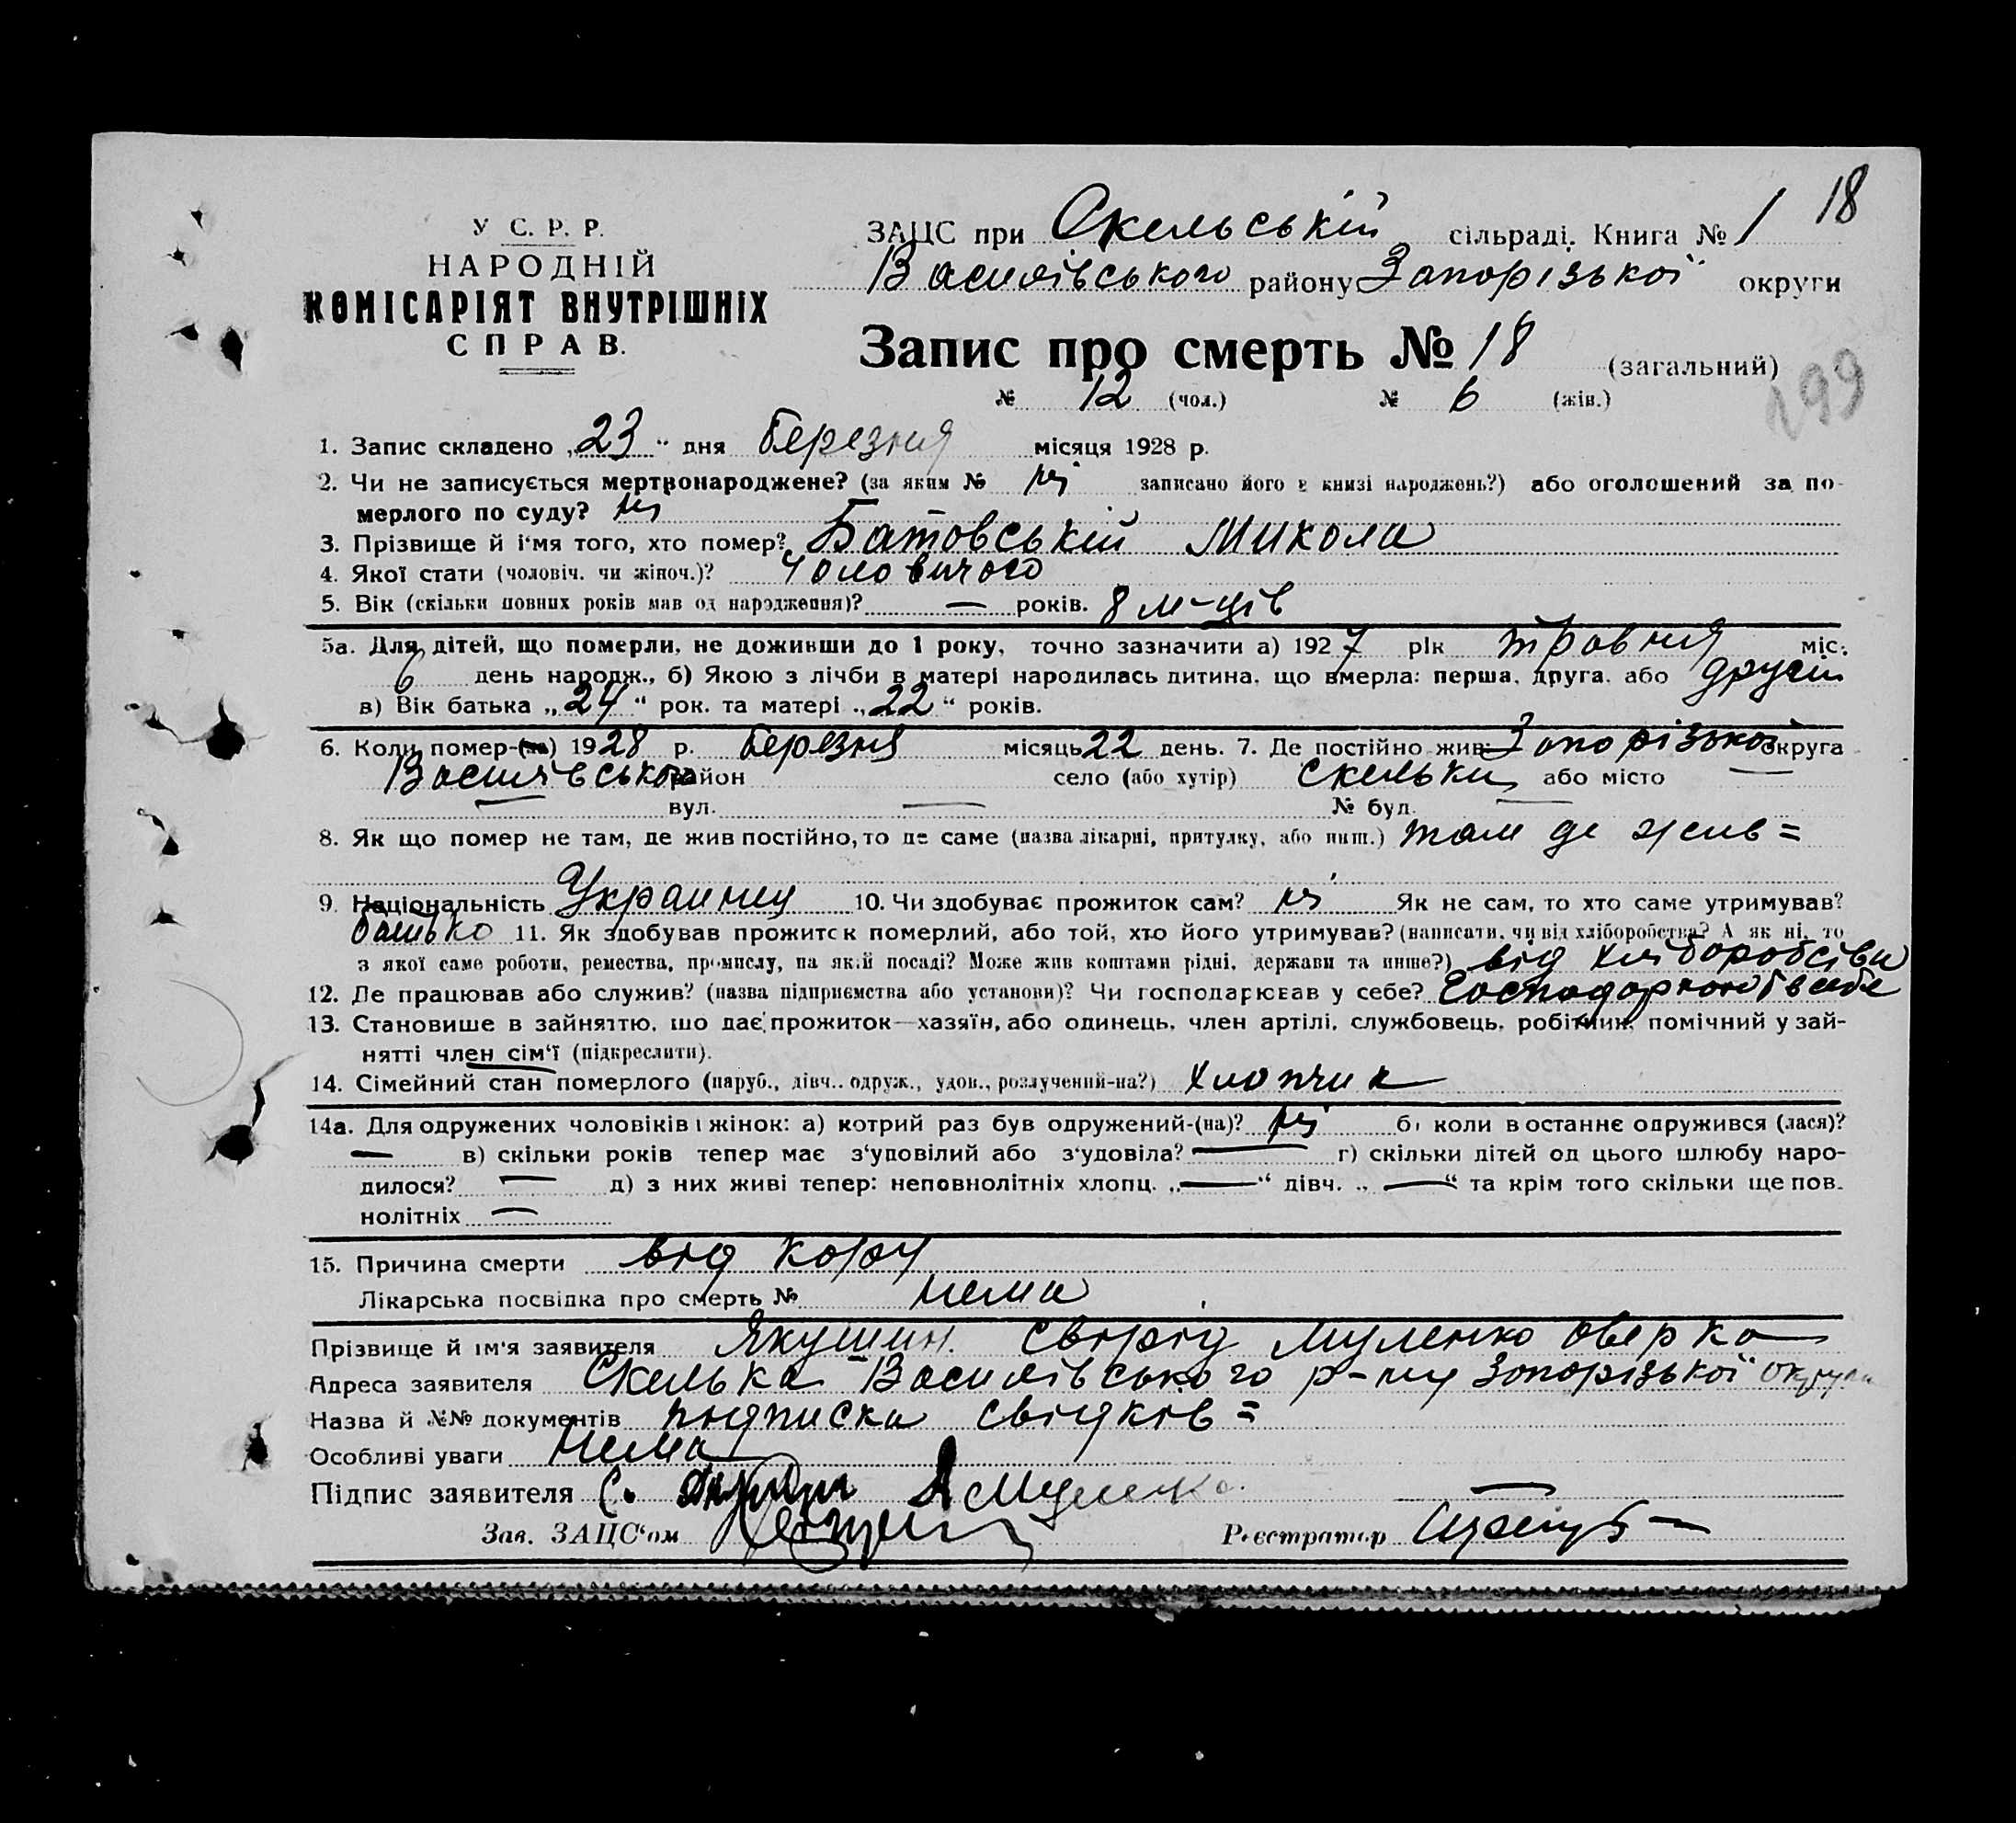 18
У С. Р. Р.
НАРОДНІЙ
КОМІСАРІЯТ ВНУТРІШНІХ
СПРАВ.
ЗАЦС при Скельській сільраді. Книга № 1
Василівського району Запорізької округи
Запис про смерть № 18 (загальний)
№ 12 (чол.) № 6 (жін.)
199
1. Запис складено „23" дня березня місяця 1928 р.
2. Чи не записується мертвонароджене? (за яким № ні записано його в книзі народжень?) або оголошений за по-
мерлого по суду? ні
3. Прізвище й і'мя того, хто помер? Батовській Микола
4. Якої стати (чоловіч. чи жіноч.)? Чоловичого
5. Вік (скільки повних років мав од народження)? — років. 8 м-ців
5а. Для дітей, що померли, не доживши до 1 року, точно зазначити а) 1927 рік травня міс.
6 день народж., б) Якою з лічби в матері народилась дитина, що вмерла: перша, друга, або другій
в) Вік батька „24" рок. та матері „22" років.
6. Коли помер-(ла) 1928 р. березня місяць 22 день. 7. Де постійно жив Запорізької округа
Василівського район село (або хутір) Скельки або місто —
— вул. — № буд. —
8. Як що помер не там, де жив постійно, то де саме (назва лікарні, притулку, або инш.) там де жив =
9. Національність Украинец 10. Чи здобуває прожиток сам? ні Як не сам, то хто саме утримував?
батько 11. Як здобував прожиток померлий, або той, хто його утримував? (написати, чи від хліборобства? А як ні, то
з якої саме роботи, ремества, промислу, на якій посаді? Може жив коштами рідні, держави та инше?) від хліборобсвва
12. Де працював або служив? (назва підприємства або установи)? Чи господарював у себе? Господарював в себе
13. Становише в зайняттю, що дає прожиток—хазяїн, або одинець, член артілі, службовець, робітник, помічний у зай-
нятті член сім'ї (підкреслити).
14. Сімейний стан померлого (паруб., дівч., одруж., удов., розлучений-на?) хлопчик
14а. Для одружених чоловіків і жінок: а) котрий раз був одружений-(на)? ні б) коли востаннє одружився (лася)?
— в) скільки років тепер має з'уповілий або з'удовіла? — г) скільки дітей од цього шлюбу наро-
дилося? — д) з них живі тепер: неповнолітніх хлопц. „—" дівч. „—" та крім того скільки ще пов.
нолітніх —
15. Причина смерти від кору
Лікарська посвідка про смерть № нема
Прізвище й ім'я заявителя Якушин. Свірід Муленко Оверко
Адреса заявителя Скелька Василівського р-ну Запорізької округи
Назва й №№ документів підписка свідків =
Особливі уваги Нема
Підпис заявителя С. А Муленко.
Зав. ЗАЦС'ом
Реєстратор